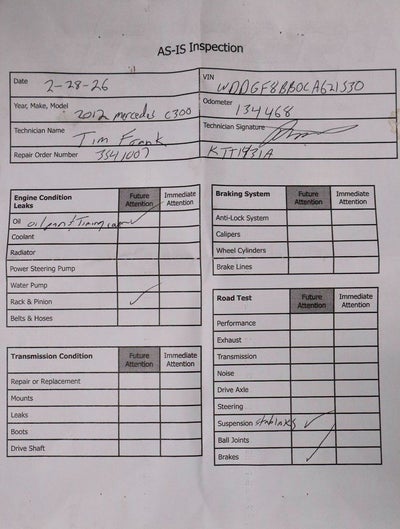 AS-IS Inspection
Date 2-28-26
VIN WDDGF8BB0CA621530
Year, Make, Model 2012 mercedes C300
Odometer 134468
Technician Name Tim Frank
Technician Signature
Repair Order Number 3541007
KTT1931A
Engine Condition
Leaks
Future Attention
Immediate Attention
Oil oil pan + Timing cover ✓
Coolant
Radiator
Power Steering Pump
Water Pump
Rack & Pinion ✓
Belts & Hoses
Transmission Condition
Future Attention
Immediate Attention
Repair or Replacement
Mounts
Leaks
Boots
Drive Shaft
Braking System
Future Attention
Immediate Attention
Anti-Lock System
Calipers
Wheel Cylinders
Brake Lines
Road Test
Future Attention
Immediate Attention
Performance
Exhaust
Transmission
Noise
Drive Axle
Steering
Suspension stab links ✓
Ball Joints
Brakes ✓